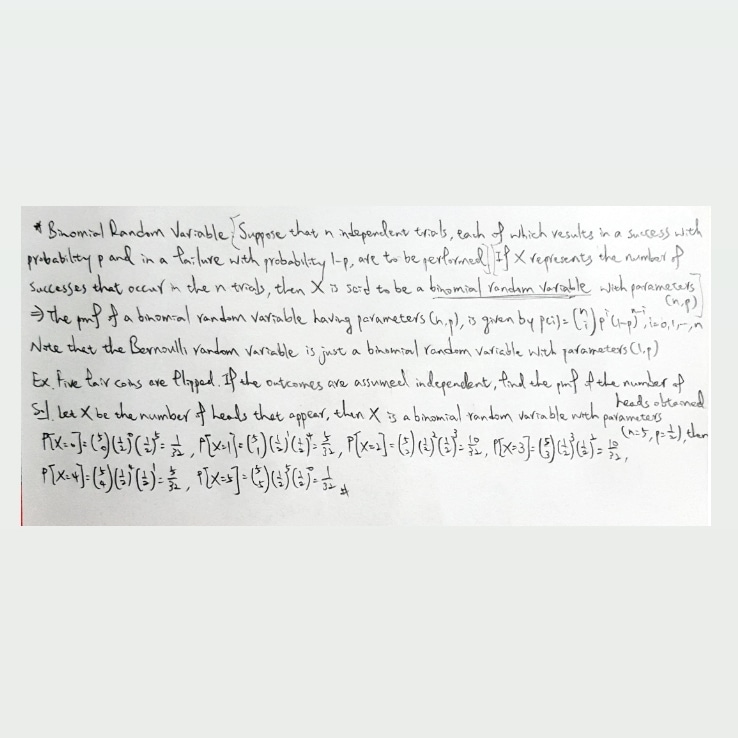 * Binomial Random Variable [Suppose that n independent trials, each of which results in a success with
probability p and in a failure with probability 1-p, are to be performed] [If X represents the number of
successes that occur in the n trials, then X is said to be a binomial random variable with parameters
(n,p)]
⇒ The pmf of a binomial random variable having parameters (n,p), is given by p(i)= (n i) p^i (1-p)^{n-i}, i=0,1,…,n
Note that the Bernoulli random variable is just a binomial random variable with parameters (1,p)
Ex. Five fair coins are flipped. If the outcomes are assumed independent, find the pmf of the number of
heads obtained
Sol. Let X be the number of heads that appear, then X is a binomial random variable with parameters
(n=5, p=1/2), then
P[X=0]=(5 0)(1/2)^0(1/2)^5=1/32, P[X=1]=(5 1)(1/2)^1(1/2)^4=5/32, P[X=2]=(5 2)(1/2)^2(1/2)^3=10/32, P[X=3]=(5 3)(1/2)^3(1/2)^2=10/32,
P[X=4]=(5 4)(1/2)^4(1/2)^1=5/32, P[X=5]=(5 5)(1/2)^5(1/2)^0=1/32 #